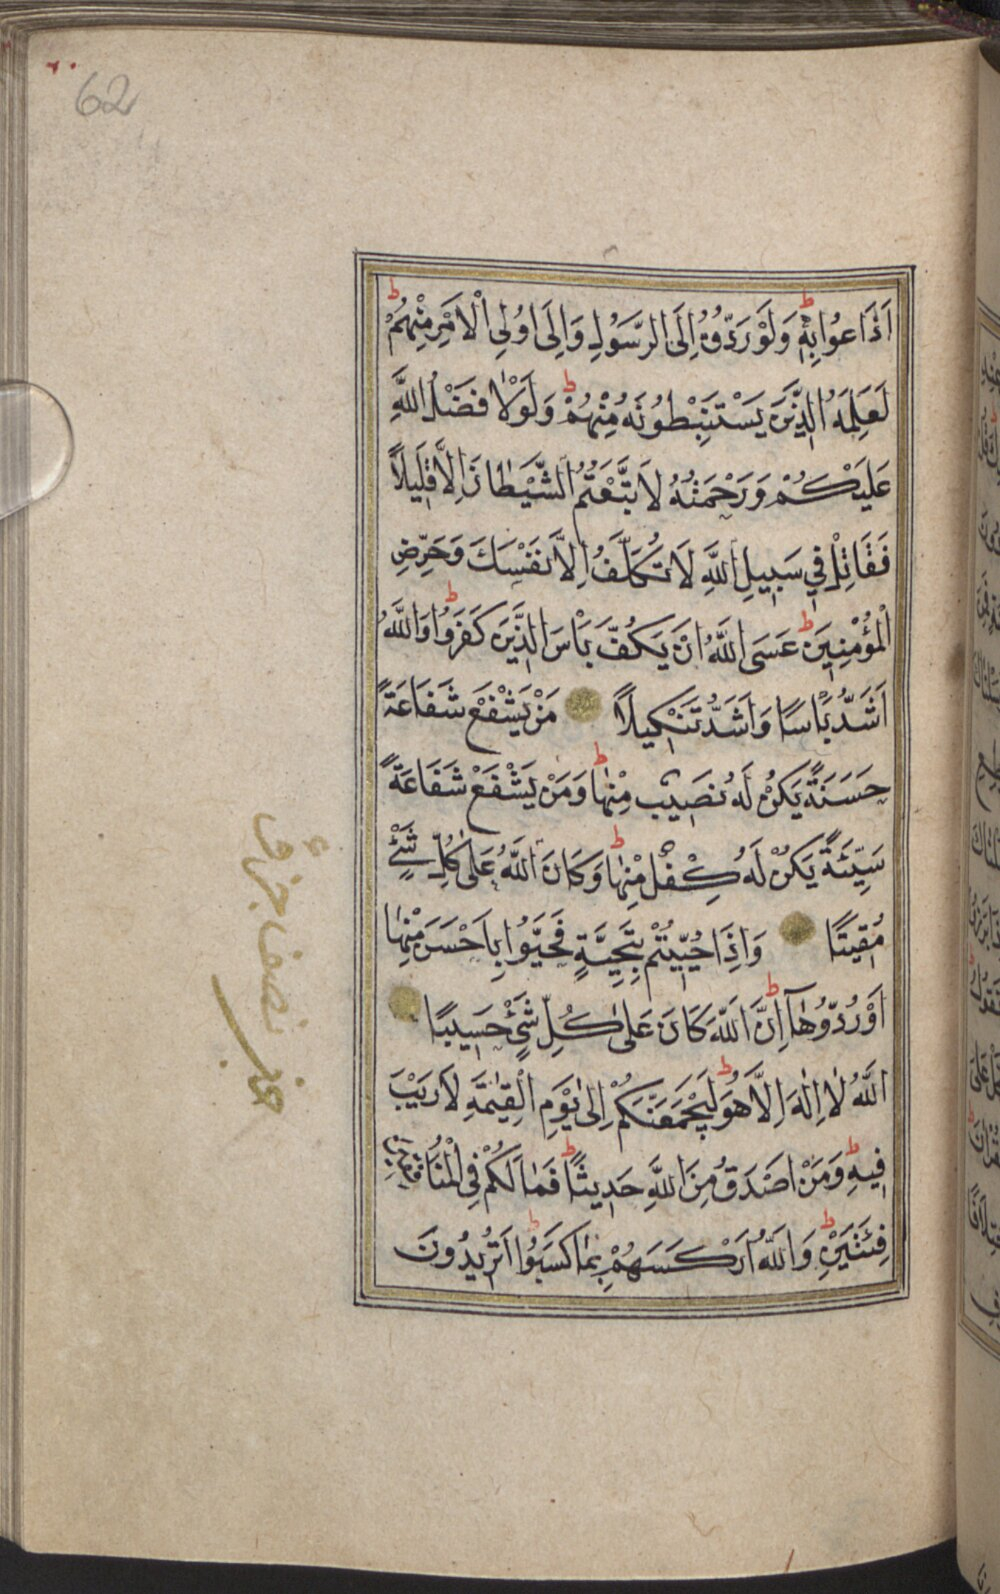 62
اَذَاعُوا بِهِ وَلَوْ رَدُّوهُ اِلَى الرَّسُولِ وَاِلَى اُولِى الْاَمْرِ مِنْهُمْ
لَعَلِمَهُ الَّذِينَ يَسْتَنْبِطُونَهُ مِنْهُمْ وَلَوْلَا فَضْلُ اللَّهِ
عَلَيْكُمْ وَرَحْمَتُهُ لَاتَّبَعْتُمُ الشَّيْطَانَ اِلَّا قَلِيلًا
فَقَاتِلْ فِى سَبِيلِ اللَّهِ لَا تُكَلَّفُ اِلَّا نَفْسَكَ وَحَرِّضِ
الْمُؤْمِنِينَ عَسَى اللَّهُ اَنْ يَكُفَّ بَاْسَ الَّذِينَ كَفَرُوا وَاللَّهُ
اَشَدُّ بَاْسًا وَاَشَدُّ تَنْكِيلًا مَنْ يَشْفَعْ شَفَاعَةً
حَسَنَةً يَكُنْ لَهُ نَصِيبٌ مِنْهَا وَمَنْ يَشْفَعْ شَفَاعَةً
سَيِّئَةً يَكُنْ لَهُ كِفْلٌ مِنْهَا وَكَانَ اللَّهُ عَلَى كُلِّ شَىْءٍ
مُقِيتًا وَاِذَا حُيِّيتُمْ بِتَحِيَّةٍ فَحَيُّوا بِاَحْسَنَ مِنْهَا
اَوْ رُدُّوهَا اِنَّ اللَّهَ كَانَ عَلَى كُلِّ شَىْءٍ حَسِيبًا
اَللَّهُ لَا اِلٰهَ اِلَّا هُوَ لَيَجْمَعَنَّكُمْ اِلٰى يَوْمِ الْقِيٰمَةِ لَا رَيْبَ
فِيهِ وَمَنْ اَصْدَقُ مِنَ اللَّهِ حَدِيثًا فَمَا لَكُمْ فِى الْمُنَافِقِينَ
فِئَتَيْنِ وَاللَّهُ اَرْكَسَهُمْ بِمَا كَسَبُوا اَتُرِيدُونَ
نصف جزء
حزب